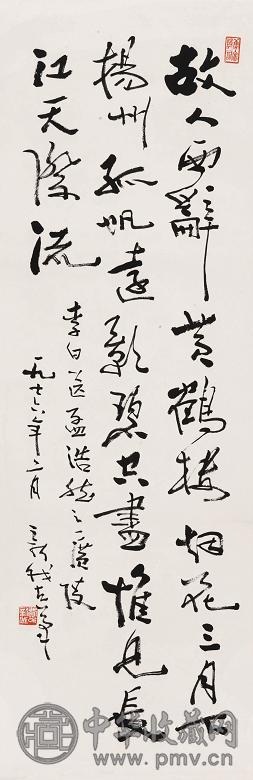 故人西辭黄鶴楼烟花三月下
揚州孤帆遠影碧空盡惟見長
江天際流
李白送孟浩然之廣陵
一九七六年二月
新我左筆
中华收藏网
www.pmv.cn